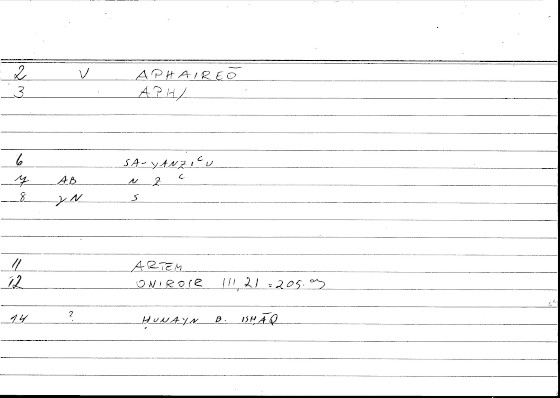 2 V APHAIREŌ
3 APH/
6 SA-YANZIᶜU
7 AB N Z ᶜ
8 γN S
11 ARTEM
12 ONIROCR III, 21 = 205.
14 ? ḤUNAYN B. ISḤĀQ